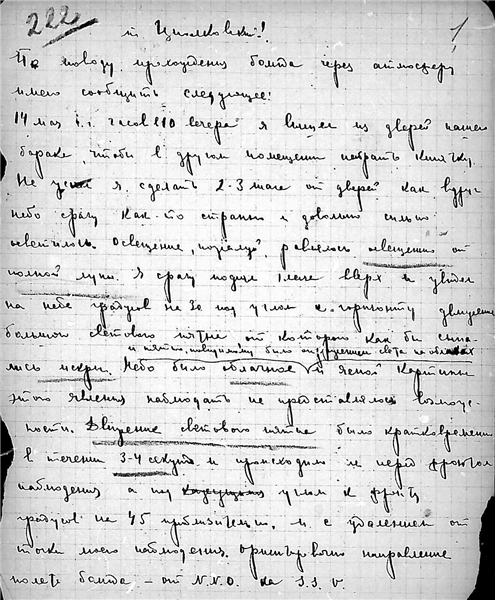 222 1
т. Циолковский!
По поводу прохождения болида через атмосферу
имею сообщить следующее:
14 мая с.г. часов в 10 вечера я вышел из дверей нашего
барака, чтобы в другом помещении набрать кипятку.
Не успел я сделать 2-3 шага от дверей как вдруг
небо сразу как-то странно и довольно сильно
осветилось. Освещение, пожалуй, равнялось освещению от
полной луны. Я сразу поднял глаза вверх и увидел
на небе градусов на 30 под углом к горизонту движущееся
большое световое пятно от которого как бы сыпа-
и пятно, повидимому было отражением света на облаках
лись искры. Небо было облачное и ясной картины
этого явления наблюдать не представлялось возмож-
ности. Движение светового пятна было кратковременно
в течении 3-4 секунд и происходило не перед фронтом
наблюдения а под углом к фронту
градусов на 45 приблизительно, и с удалением от
точки моего наблюдения. Ориентировочно направление
полета болида - от N.N.O. на S.S.